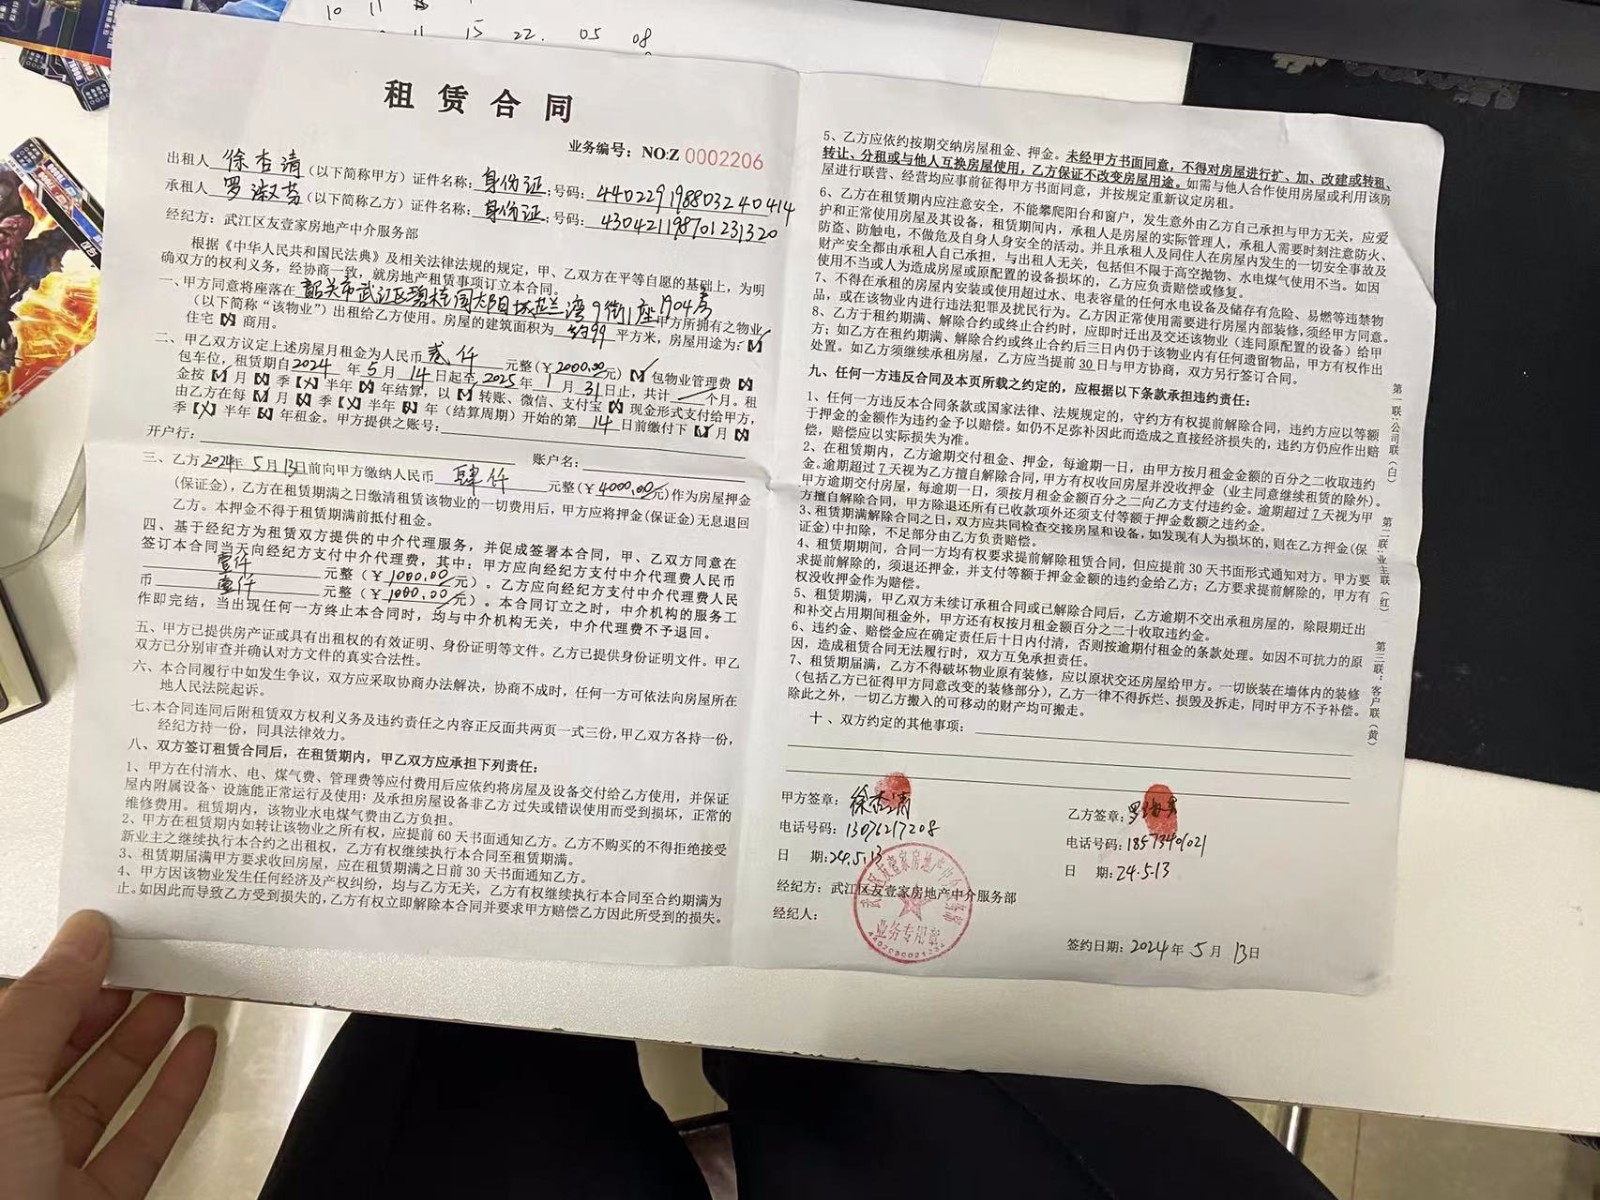 10 11
11 15 22. 05 08
租赁合同
业务编号：NO:Z 0002206
出租人 徐杏清（以下简称甲方）证件名称：身份证；号码：440229198803240414
承租人 罗淑芬（以下简称乙方）证件名称：身份证；号码：430421198701231320
经纪方：武江区友壹家房地产中介服务部
根据《中华人民共和国民法典》及相关法律法规的规定，甲、乙双方在平等自愿的基础上，为明
确双方的权利义务，经协商一致，就房地产租赁事项订立本合同。
一、甲方同意将座落在 韶关市武江区碧桂园太阳城拉兰湾9街1座1904房
（以下简称“该物业”）出租给乙方使用。房屋的建筑面积为 约99 平方米，房屋用途为：
甲方所拥有之物业
住宅 商用。
二、甲乙双方议定上述房屋月租金为人民币 贰仟 元整（￥2000.00元） 包物业管理费
包车位，租赁期自2024年5月14日起至2025年1月31日止，共计 个月。租
金按 月 季 半年 年结算，以 转账、微信、支付宝 现金形式支付给甲方，
由乙方在每 月 季 半年 年（结算周期）开始的第 14 日前缴付下 月
季 半年 年租金。甲方提供之账号：
开户行： 账户名：
三、乙方2024年5月13日前向甲方缴纳人民币 肆仟 元整（￥4000.00元）作为房屋押金
（保证金），乙方在租赁期满之日缴清租赁该物业的一切费用后，甲方应将押金(保证金)无息退回
乙方。本押金不得于租赁期满前抵付租金。
四、基于经纪方为租赁双方提供的中介代理服务，并促成签署本合同，甲、乙双方同意在
签订本合同当天向经纪方支付中介代理费，其中：甲方应向经纪方支付中介代理费人民币
壹仟 元整（￥1000.00元）。乙方应向经纪方支付中介代理费人民
币 壹仟 元整（￥1000.00元）。本合同订立之时，中介机构的服务工
作即完结，当出现任何一方终止本合同时，均与中介机构无关，中介代理费不予退回。
五、甲方已提供房产证或具有出租权的有效证明、身份证明等文件。乙方已提供身份证明文件。甲乙
双方已分别审查并确认对方文件的真实合法性。
六、本合同履行中如发生争议，双方应采取协商办法解决，协商不成时，任何一方可依法向房屋所在
地人民法院起诉。
七、本合同连同后附租赁双方权利义务及违约责任之内容正反面共两页一式三份，甲乙双方各持一份，
经纪方持一份，同具法律效力。
八、双方签订租赁合同后，在租赁期内，甲乙双方应承担下列责任：
1、甲方在付清水、电、煤气费、管理费等应付费用后应依约将房屋及设备交付给乙方使用，并保证
屋内附属设备、设施能正常运行及使用；及承担房屋设备非乙方过失或错误使用而受到损坏，正常的
维修费用。租赁期内，该物业水电煤气费由乙方负担。
2、甲方在租赁期内如转让该物业之所有权，应提前60天书面通知乙方。乙方不购买的不得拒绝接受
新业主之继续执行本合约之出租权，乙方有权继续执行本合同至租赁期满。
3、租赁期届满甲方要求收回房屋，应在租赁期满之日前30天书面通知乙方。
4、甲方因该物业发生任何经济及产权纠纷，均与乙方无关，乙方有权继续执行本合同至合约期满为
止。如因此而导致乙方受到损失的，乙方有权立即解除本合同并要求甲方赔偿乙方因此所受到的损失。
5、乙方应依约按期交纳房屋租金、押金。未经甲方书面同意，不得对房屋进行扩、加、改建或转租、
转让、分租或与他人互换房屋使用，乙方保证不改变房屋用途。如需与他人合作使用房屋或利用该房
屋进行联营、经营均应事前征得甲方书面同意，并按规定重新议定房租。
6、乙方在租赁期内应注意安全，不能攀爬阳台和窗户，发生意外由乙方自己承担与甲方无关，应爱
护和正常使用房屋及其设备，租赁期间内，承租人是房屋的实际管理人，承租人需要时刻注意防火、
防盗、防触电，不做危及自身人身安全的活动。并且承租人及同住人在房屋内发生的一切安全事故及
财产安全都由承租人自己承担，与出租人无关，包括但不限于高空抛物、水电煤气使用不当。如因
使用不当或人为造成房屋或原配置的设备损坏的，乙方应负责赔偿或修复。
7、不得在承租的房屋内安装或使用超过水、电表容量的任何水电设备及储存有危险、易燃等违禁物
品，或在该物业内进行违法犯罪及扰民行为。乙方因正常使用需要进行房屋内部装修，须经甲方同意。
8、乙方于租约期满、解除合约或终止合约时，应即时迁出及交还该物业（连同原配置的设备）给甲
方；如乙方在租约期满、解除合约或终止合约后三日内仍于该物业内有任何遗留物品，甲方有权作出
处置。如乙方须继续承租房屋，乙方应当提前30日与甲方协商，双方另行签订合同。
九、任何一方违反合同及本页所载之约定的，应根据以下条款承担违约责任：
1、任何一方违反本合同条款或国家法律、法规规定的，守约方有权提前解除合同，违约方应以等额
于押金的金额作为违约金予以赔偿。如仍不足弥补因此而造成之直接经济损失的，违约方仍应作出赔
偿，赔偿应以实际损失为准。
2、在租赁期内，乙方逾期交付租金、押金，每逾期一日，由甲方按月租金金额的百分之二收取违约
金。逾期超过7天视为乙方擅自解除合同，甲方有权收回房屋并没收押金（业主同意继续租赁的除外）。
甲方逾期交付房屋，每逾期一日，须按月租金金额百分之二向乙方支付违约金。逾期超过7天视为甲
方擅自解除合同，甲方除退还所有已收款项外还须支付等额于押金数额之违约金。
3、租赁期满解除合同之日，双方应共同检查交接房屋和设备，如发现有人为损坏的，则在乙方押金(保
证金)中扣除，不足部分由乙方负责赔偿。
4、租赁期期间，合同一方均有权要求提前解除租赁合同，但应提前30天书面形式通知对方。甲方要
求提前解除的，须退还押金，并支付等额于押金金额的违约金给乙方；乙方要求提前解除的，甲方有
权没收押金作为赔偿。
5、租赁期满，甲乙双方未续订承租合同或已解除合同后，乙方逾期不交出承租房屋的，除限期迁出
和补交占用期间租金外，甲方还有权按月租金额百分之二十收取违约金。
6、违约金、赔偿金应在确定责任后十日内付清，否则按逾期付租金的条款处理。如因不可抗力的原
因，造成租赁合同无法履行时，双方互免承担责任。
7、租赁期届满，乙方不得破坏物业原有装修，应以原状交还房屋给甲方。一切嵌装在墙体内的装修
(包括乙方已征得甲方同意改变的装修部分)，乙方一律不得拆烂、损毁及拆走，同时甲方不予补偿。
除此之外，一切乙方搬入的可移动的财产均可搬走。
十、双方约定的其他事项：
甲方签章：徐杏清
电话号码：13076217208
日 期：24.5.13
经纪方：武江区友壹家房地产中介服务部
经纪人：
乙方签章：罗淑芬
电话号码：18573406021
日 期：24.5.13
签约日期：2024年5月13日
武江区友壹家房地产中介服务部
业务专用章
第一联：公司联（白）
第二联：业主联（红）
第三联：客户联（黄）